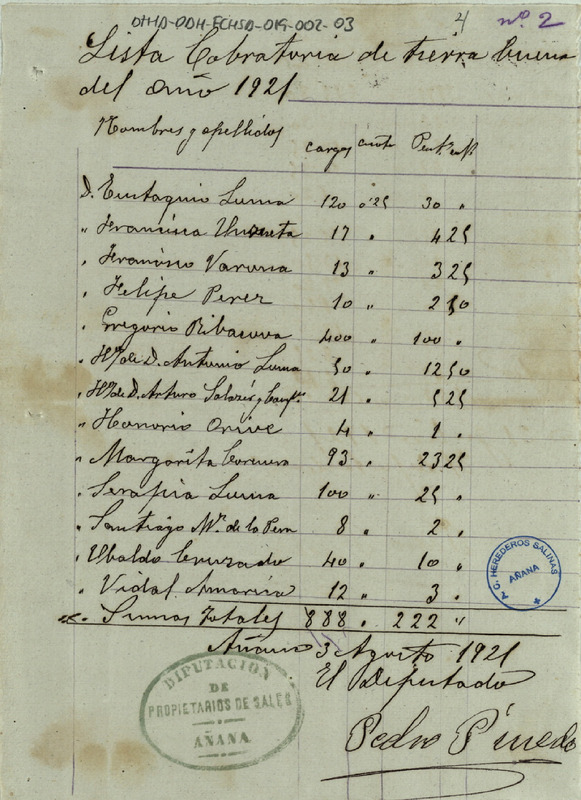 DIHA-DDH-FCHSD-019-002-03
2/ nº 2
Lista Cobratoria de tierra buena
del año 1921
Nombres y apellidos cargas cuota Peset. cent.
D. Eustaquio Luma 120 0'25 30 "
" Francisca Unzueta 17 " 4 25
" Francisco Varona 13 " 3 25
" Felipe Perez 10 " 2 50
" Gregorio Ribacova 400 " 100 "
" Hºs de D. Antonio Luma 50 " 12 50
" Hºs de D. Arturo Salazar y 21 " 5 25
" Honorio Orive 4 " 1 "
" Margarita 93 " 23 25
" Serapia Luma 100 " 25 "
" Santiago Mz. de la Pera 8 " 2 "
" Ubaldo Cruzado 40 " 10 "
" Vidal 12 " 3 "
Sumas Totales 888 " 222 "
Añana 3 Agosto 1921
El Diputado
Pedro Pinedo
DIPUTACIÓN
DE
PROPIETARIOS DE SALES
AÑANA
C. HEREDEROS SALINAS
AÑANA